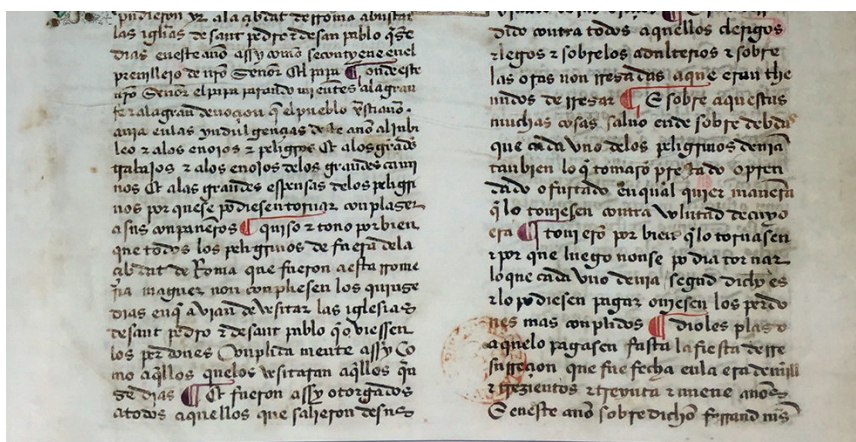 pudieron yr ala abdat de rroma abusitar
las iglias de sant pedro r de san pablo q̃ se
dias en este año assy como se contyene enel
preuillejo de nr̃o Señor El papa ¶ onde este
nr̃o Señor el papa parando mientes ala gran
fe r ala gran deuoçion q̃ el pueblo xr̃istiano
auia en las yndulgençias deste año al jubi
leo r alos enojos r peligros Et alos grãds
trabajos r alos enojos delos grandes cami
nos Et alas grandes espensas delos peligri
nos por que se podiesen tornar con plazer
a sus conpañeros ¶ quiso r touo por bien
que todos los peligrinos de fuera dela
abdat de Roma que fueron a esta rrome
ria maguer non conpliesen los quinze
dias enq̃ auian de vesitar las iglesias
de sant pedro r de sant pablo q̃ ouiessen
los perdones Conplida mente assy Co
mo aq̃llos quelos vesitaran aq̃llos qui
ze dias ¶ Et fueron assy otorgados
a todos aquellos que salieron de sus
dido contra todos aquellos clerigos
r legos r sobrelos adulterios r sobre
las oras non rresadas aque eran the
nudos de rresar ¶ E sobre aquestas
muchas cosas saluo ende sobre debdas
que cada vno delos peligrinos deuia
tanbien lo q̃ tomarõ prestado o pren
dado o furtado en qual quier manera
q̃ lo touiesen contra volũtad de cuyo
era ¶ touierõ por bien q̃ lo tornasen
r por que luego non se podia tornar
lo que cada vno deuia segũd dicho es
r lo podiesen pagar ouiesen los perdo
nes mas conplidos ¶ dioles plaso
a quelo pagasen fasta la fiesta de rre
surreçion que fue fecha enla era de mill
r trezientos r treynta r nueue años
E eneste año sobre dicho